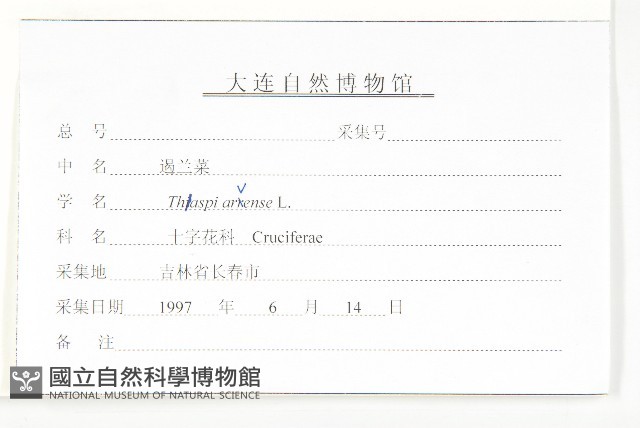 大连自然博物馆
总 号 采集号
中 名 遏兰菜
学 名 Thlaspi arvense L.
科 名 十字花科 Cruciferae
采集地 吉林省长春市
采集日期 1997 年 6 月 14 日
备 注
國立自然科學博物館
NATIONAL MUSEUM OF NATURAL SCIENCE